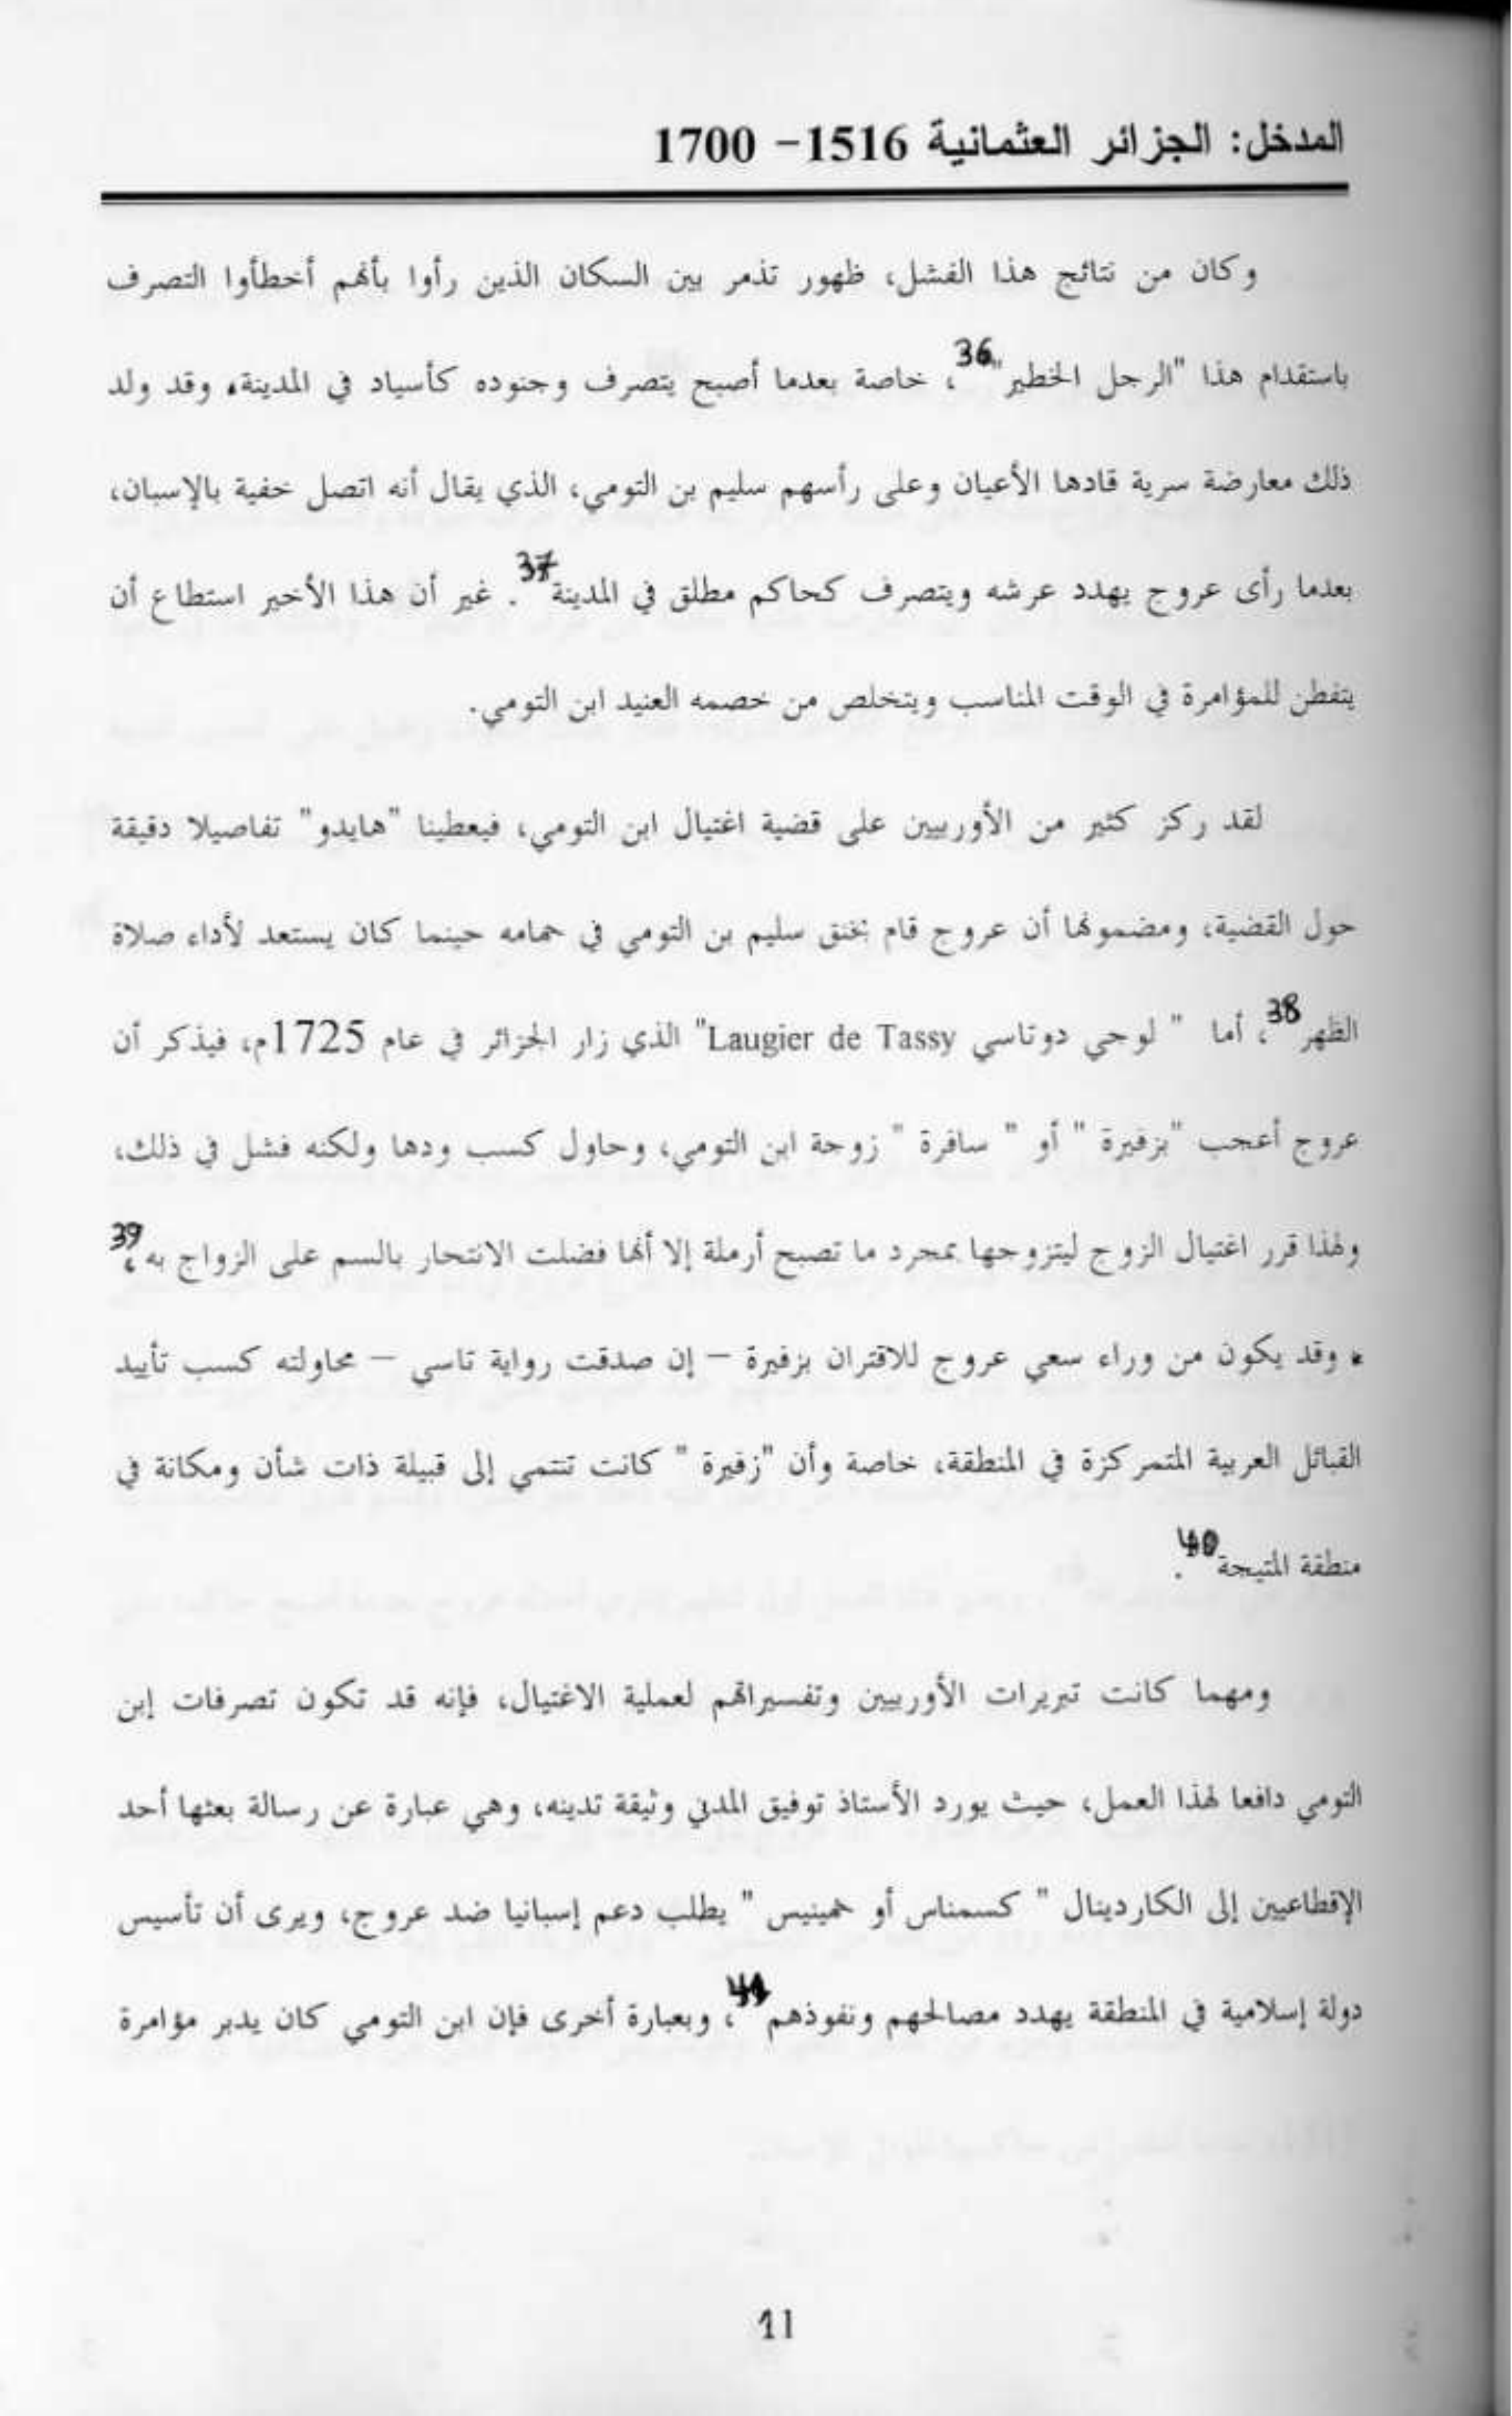 المدخل: الجزائر العثمانية 1516- 1700
وكان من نتائج هذا الفشل، ظهور تذمر بين السكان الذين رأوا بأنهم أخطأوا التصرف
باستقدام هذا "الرجل الخطير"36، خاصة بعدما أصبح يتصرف وجنوده كأسياد في المدينة، وقد ولد
ذلك معارضة سرية قادها الأعيان وعلى رأسهم سليم بن التومي، الذي يقال أنه اتصل خفية بالإسبان،
بعدما رأى عروج يهدد عرشه ويتصرف كحاكم مطلق في المدينة37. غير أن هذا الأخير استطاع أن
يتفطن للمؤامرة في الوقت المناسب ويتخلص من خصمه العنيد ابن التومي.
لقد ركز كثير من الأوربيين على قضية اغتيال ابن التومي، فيعطينا "هايدو" تفاصيلا دقيقة
حول القضية، ومضمونها أن عروج قام بخنق سليم بن التومي في حمامه حينما كان يستعد لأداء صلاة
الظهر38، أما " لوجي دوتاسي Laugier de Tassy" الذي زار الجزائر في عام 1725م، فيذكر أن
عروج أعجب "بزفيرة " أو " سافرة " زوجة ابن التومي، وحاول كسب ودها ولكنه فشل في ذلك،
ولهذا قرر اغتيال الزوج ليتزوجها بمجرد ما تصبح أرملة إلا أنها فضلت الانتحار بالسم على الزواج به39،
، وقد يكون من وراء سعي عروج للاقتران بزفيرة – إن صدقت رواية تاسي – محاولته كسب تأييد
القبائل العربية المتمركزة في المنطقة، خاصة وأن "زفيرة " كانت تنتمي إلى قبيلة ذات شأن ومكانة في
منطقة المتيجة40.
ومهما كانت تبريرات الأوربيين وتفسيراتهم لعملية الاغتيال، فإنه قد تكون تصرفات إبن
التومي دافعا لهذا العمل، حيث يورد الأستاذ توفيق المدني وثيقة تدينه، وهي عبارة عن رسالة بعثها أحد
الإقطاعيين إلى الكاردينال " كسمناس أو خمينيس " يطلب دعم إسبانيا ضد عروج، ويرى أن تأسيس
دولة إسلامية في المنطقة يهدد مصالحهم ونفوذهم41، وبعبارة أخرى فإن ابن التومي كان يدبر مؤامرة
11